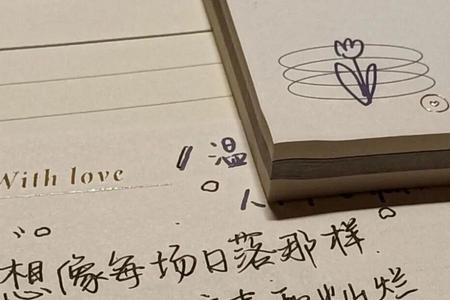 With love
温
想像每场日落那样
烂